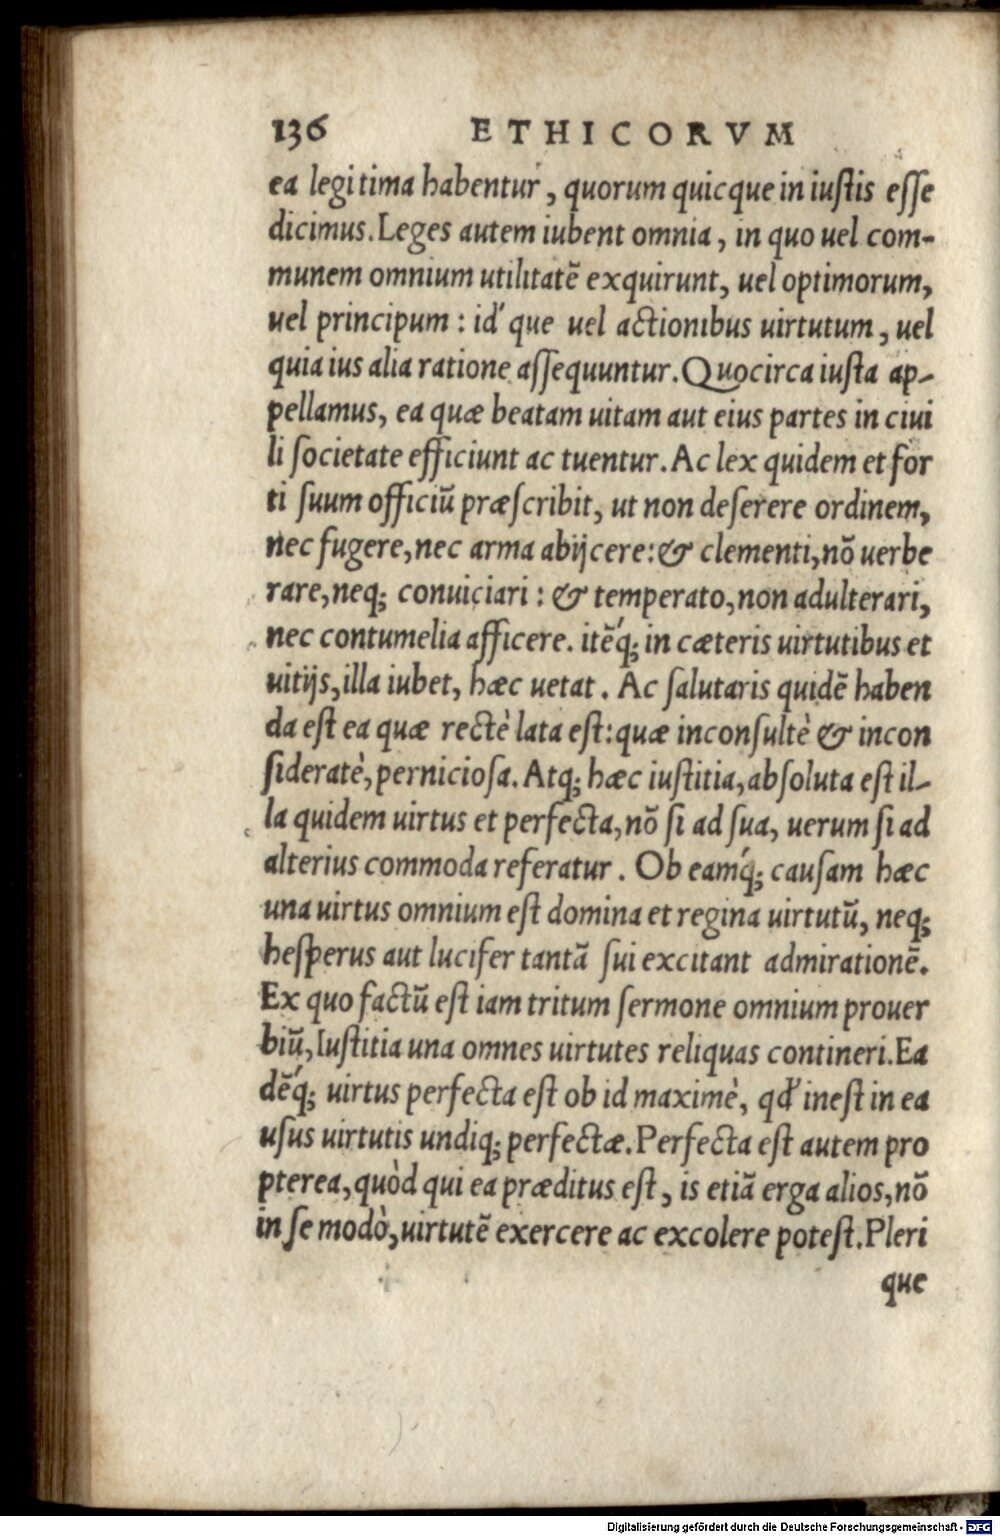 136 ETHICORVM
ea legitima habentur, quorum quicque in iustis esse
dicimus. Leges autem iubent omnia, in quo uel com-
munem omnium utilitatē exquirunt, uel optimorum,
uel principum: id´que uel actionibus uirtutum, uel
quia ius alia ratione assequuntur. Quocirca iusta ap-
pellamus, ea quæ beatam uitam aut eius partes in ciui
li societate efficiunt ac tuentur. Ac lex quidem et for
ti suum officiū præscribit, ut non deserere ordinem,
nec fugere, nec arma abijcere: & clementi, nō uerbe
rare, neq; conuiciari: & temperato, non adulterari,
nec contumelia afficere. itēq́; in cæteris uirtutibus et
uitijs, illa iubet, hæc uetat. Ac salutaris quidē haben
da est ea quæ rectè lata est: quæ inconsultè & incon
sideratè, perniciosa. Atq; hæc iustitia, absoluta est il-
la quidem uirtus et perfecta, nō si ad sua, uerum si ad
alterius commoda referatur. Ob eamq́; causam hæc
una uirtus omnium est domina et regina uirtutū, neq;
hesperus aut lucifer tantā sui excitant admirationē.
Ex quo factū est iam tritum sermone omnium prouer
biū, Iustitia una omnes uirtutes reliquas contineri. Ea
dēq́; uirtus perfecta est ob id maximè, qđ inest in ea
usus uirtutis undiq; perfectæ. Perfecta est autem pro
pterea, quòd qui ea præditus est, is etiā erga alios, nō
in se modò, uirtutē exercere ac excolere potest. Pleri
que
Digitalisierung gefördert durch die Deutsche Forschungsgemeinschaft - DFG